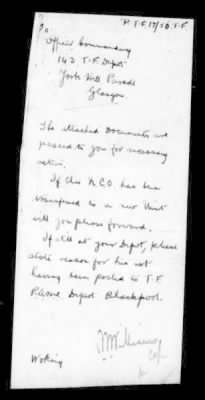 To
Officer Commanding
143 T.F. Depot
York Hill Parade
Glasgow
The attached Documents are
passed to you for necessary
action.
If this N.C.O. has been
transferred to a new Unit
will you please forward.
If still at your Depot, please
state reason for his not
having been posted to T.F.
Depot Blackpool.
Woking